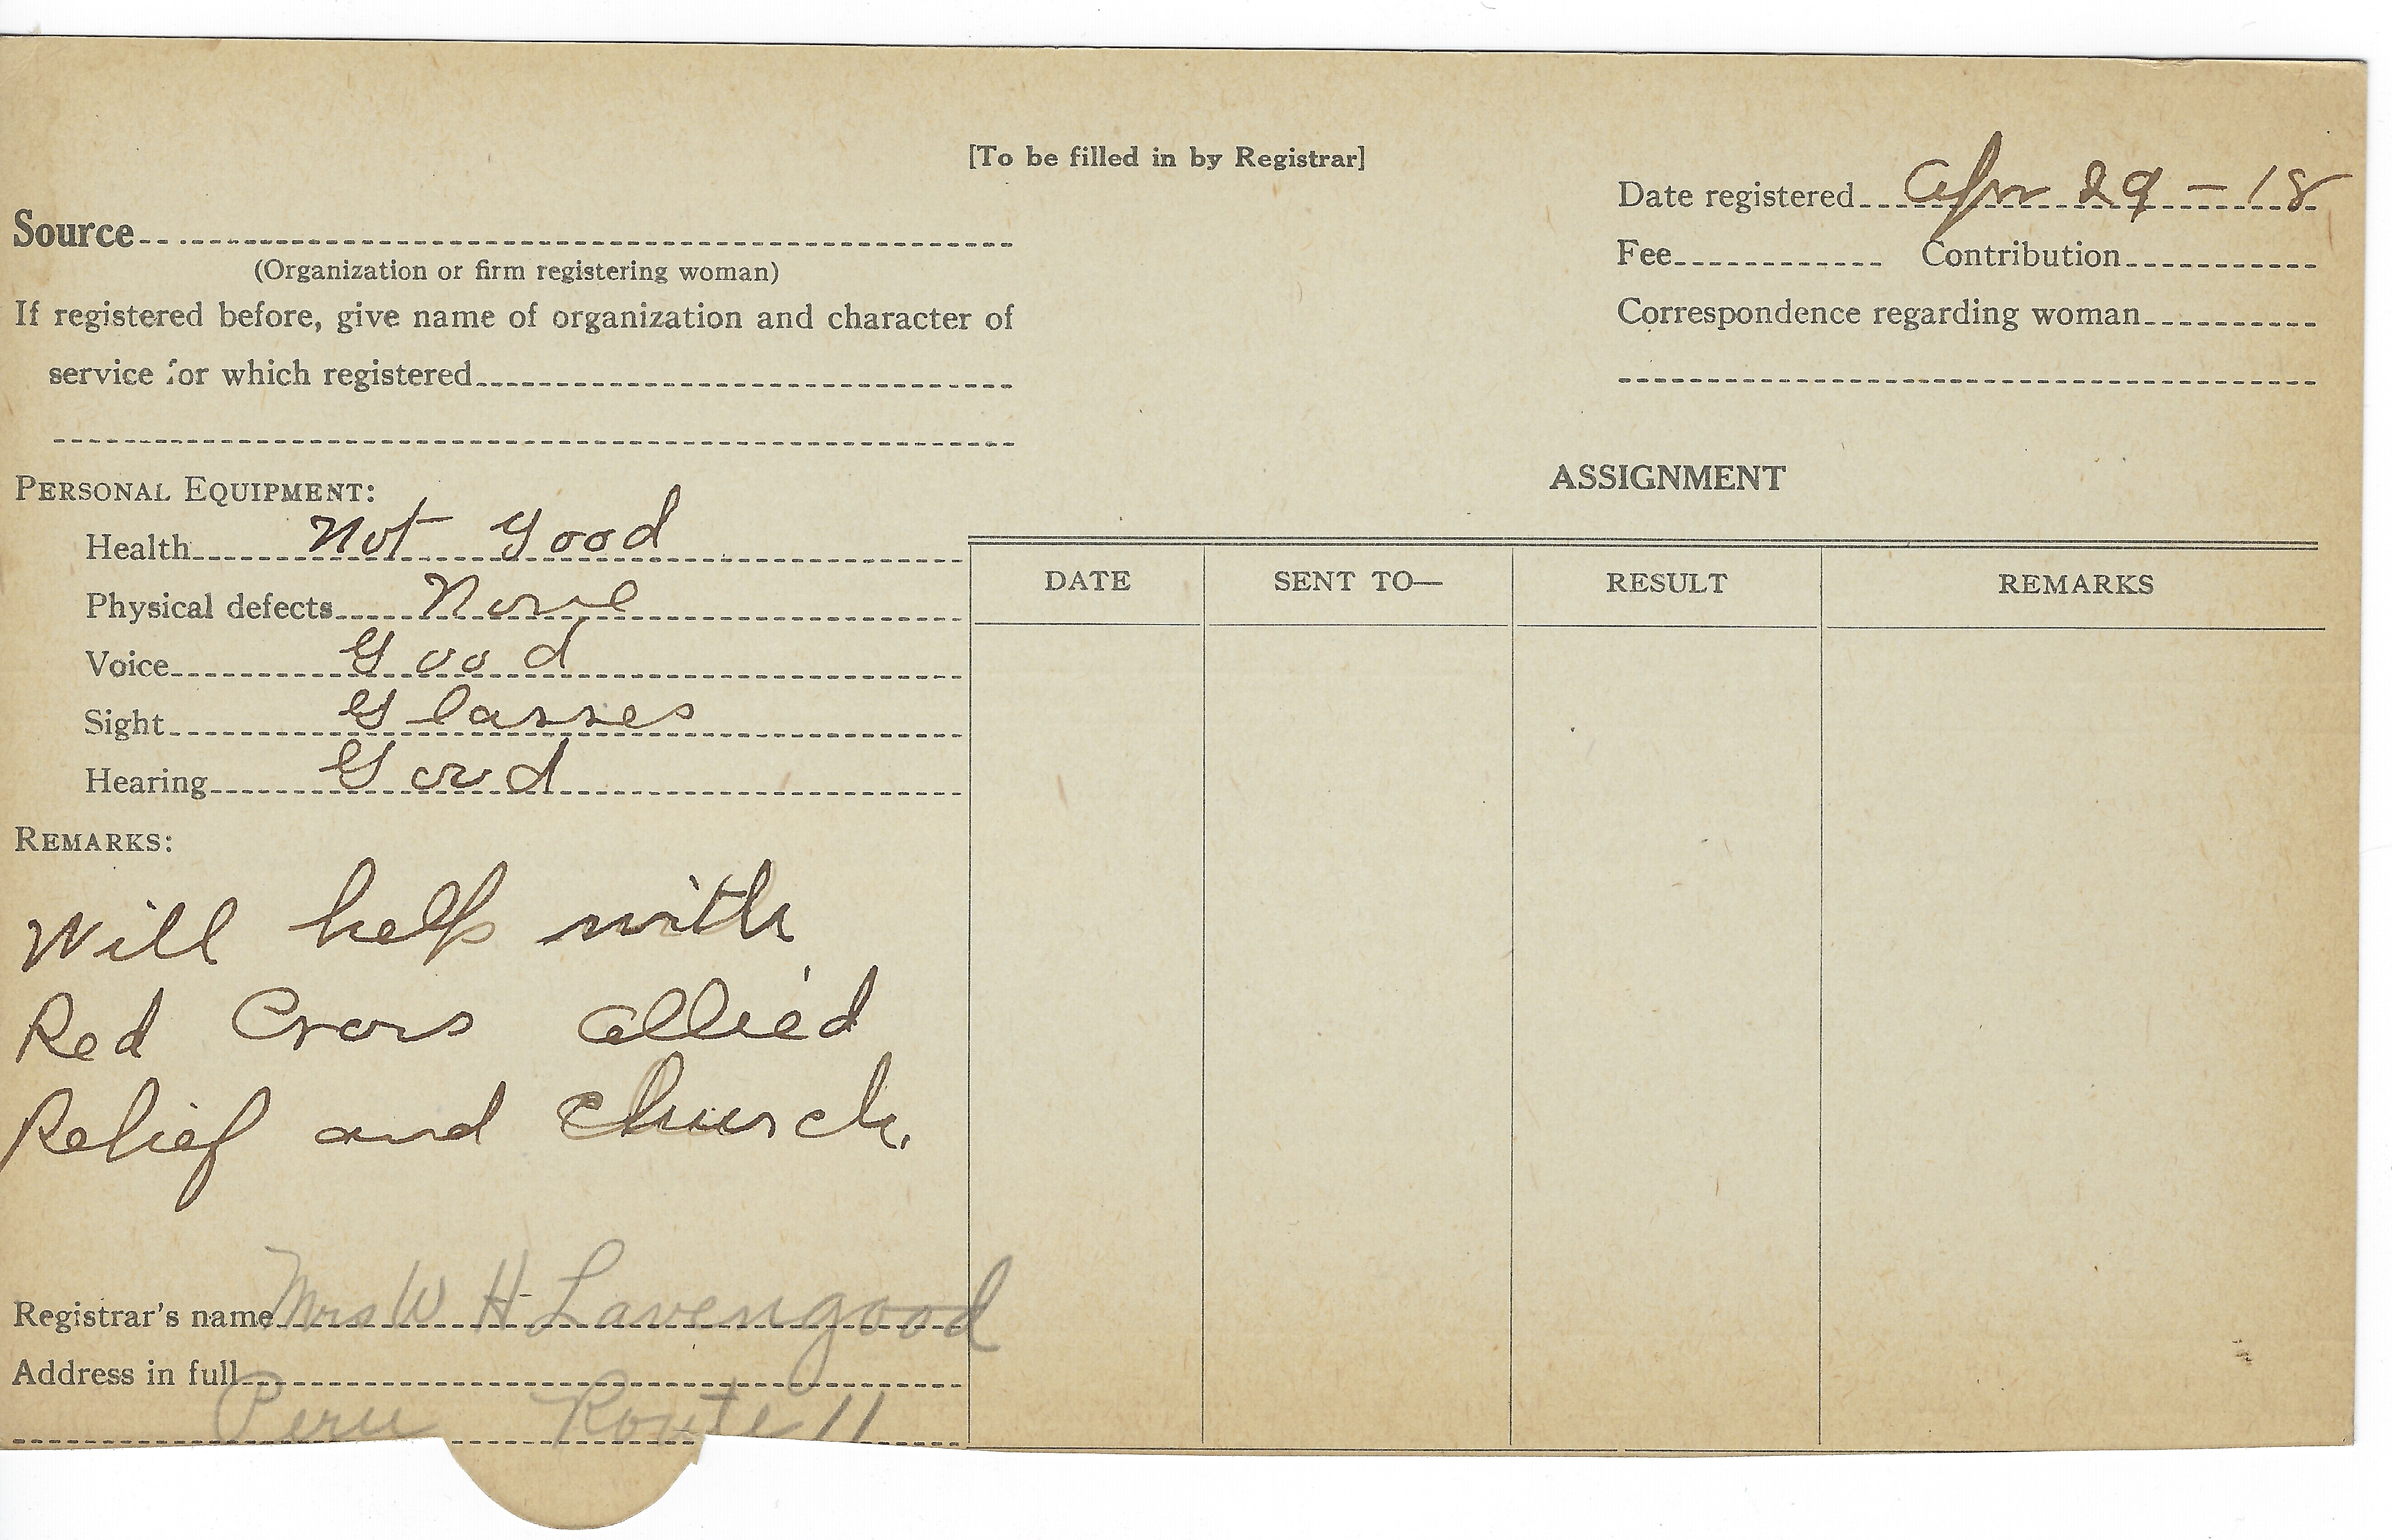 [To be filled in by Registrar]
Date registered Apr 29 - 18
Source
(Organization or firm registering woman)
Fee Contribution
If registered before, give name of organization and character of
service for which registered
Correspondence regarding woman
ASSIGNMENT
PERSONAL EQUIPMENT:
Health Not Good
Physical defects None
Voice Good
Sight Glasses
Hearing Good
DATE SENT TO— RESULT REMARKS
REMARKS:
Will help with
Red Cross allied
Relief and church.
Registrar's name Mrs W H Lavengood
Address in full
Peru Route 11